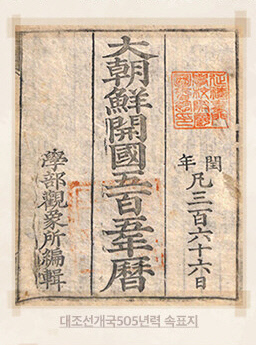 閏年 凡三百六十六日
大朝鮮開國五百五年曆
學部觀象所編輯
대조선개국505년력 속표지